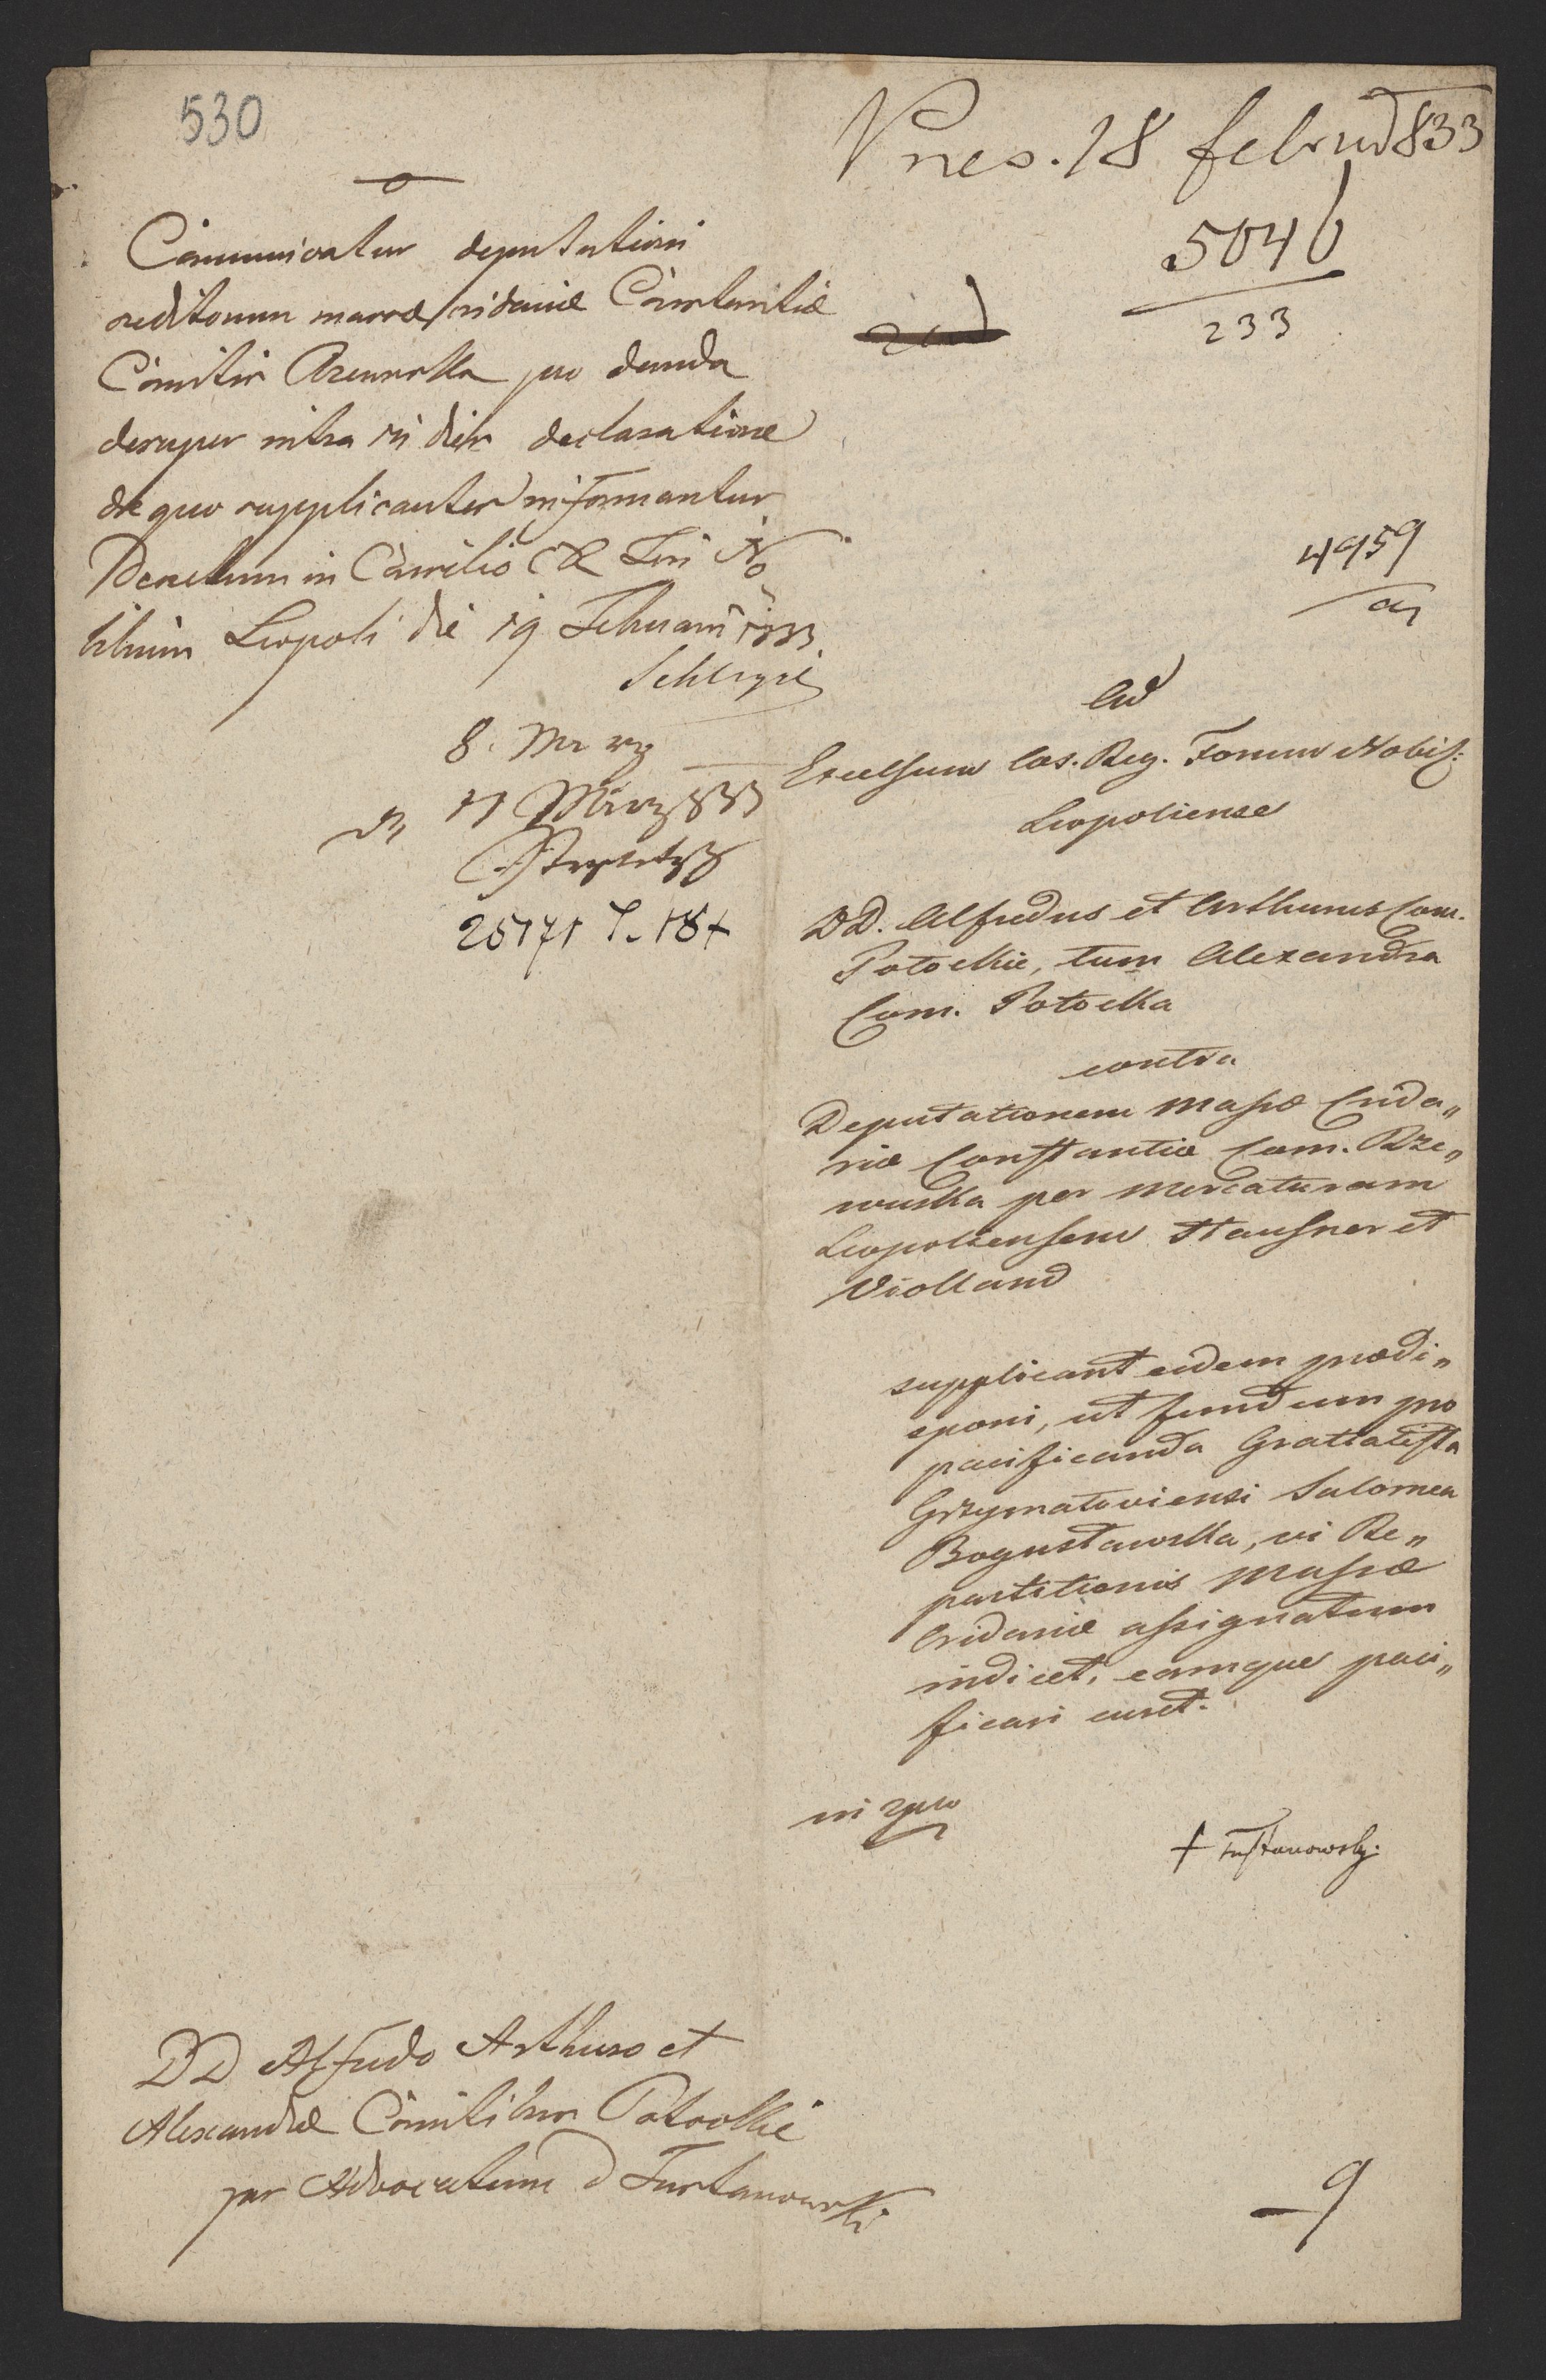 530
Pres. 18 febru 833
5046
233
Communicatur deputationi
creditorum massæ cridariæ Constantiæ
Comitis Rzewuska pro danda
desuper intra 15 dies declaratione
de quo supplicantes informantur
Decretum in Consilio C R Fori No
bilium Leopoli die 19 Februarii 1833.
8. März
11 März 833
25171
4959
Ad
Excelsum Cæs. Reg. Forum Nobil:
Leopoliense
DD. Alfredus et Arthurus Com.
Potockie, tum Alexandra
Com. Potocka
contra
Deputationem Massæ Crida„
riæ Constantiæ Com. Rze„
wuska per mercaturam
Leopoliensem Hausner et
Violland
supplicant eidem prædi„
sponi, ut fundum pro
pacificanda Gratialista
Grzymałoviensi Salomea
Bogusławska, vi Re„
partitionis Massæ
Cridariæ assignatum
indicet, eamque paci„
ficari curet.
in 2plo
Tustanowsky
DD Alfredo Arthuro et
Alexandræ Comitibus Potockie
per Advocatum D Tustanowski
9